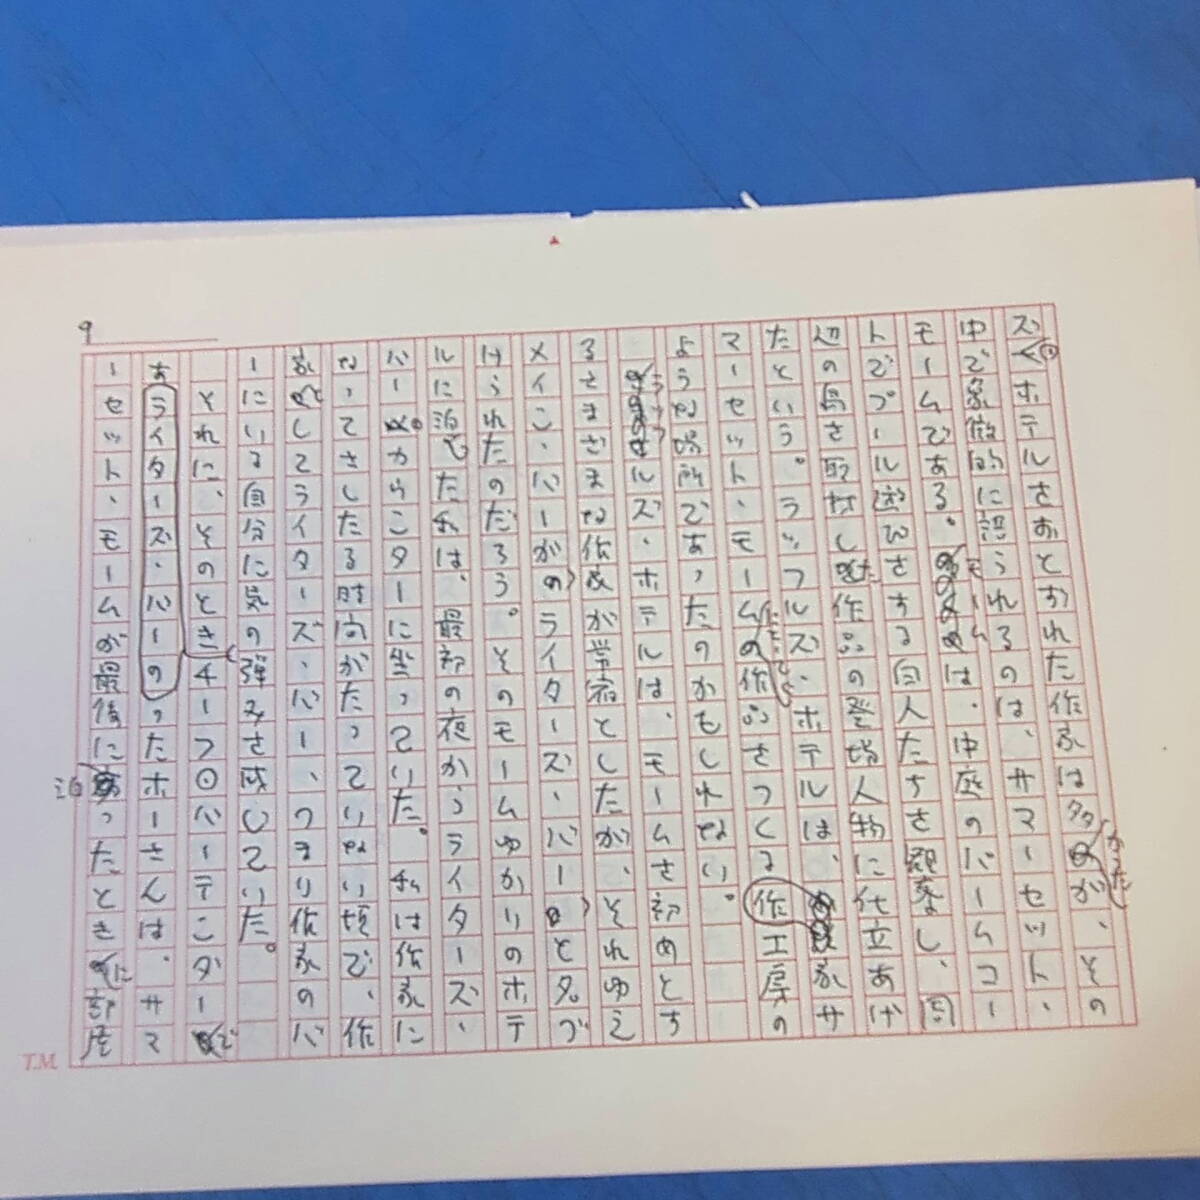 ズホテルをおとずれた作家は多かったが、その
中で象徴的に語られるのは、サマーセット・
モームである。モームは、中庭のバームコー
トでプール遊びをする白人たちを観察し、周
辺の島を取材した作品の登場人物に仕立あげ
たという。ラッフルズ・ホテルは、作家サ
マーセット・モームにとって作品をつくる工房の
ような場所であったのかもしれない。
ラッフルズ・ホテルは、モームを初めとす
るさまざまな作家が常宿としたが、それゆえ
メイン・バーがライターズ・バーと名づ
けられたのだろう。そのモームゆかりのホテ
ルに泊した私は、最初の夜からライターズ・
バーのカウンターに坐っていた。私は作家に
なってさしたる時間がたっていない頃で、作
家としてライターズ・バー、つまり作家のバ
ーにいる自分に気の弾みを感じていた。
それに、そのときチーフ・バーテンダーで
あったホーさんは、サマ
ーセット・モームが最後に泊ったときに部屋
ライターズ・バーの
9
T.M.